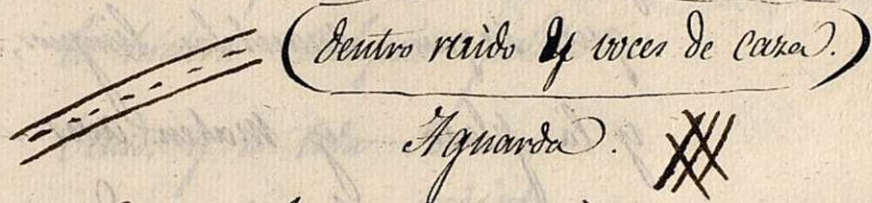 (dentro ruido y voces de caza).
Aguarda.